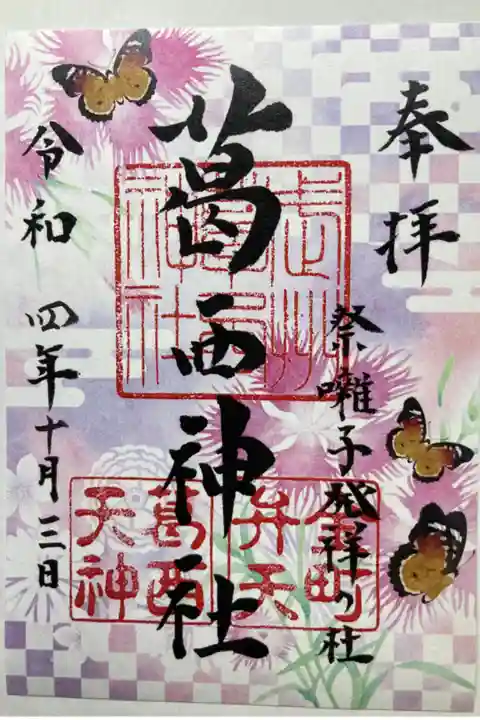 奉拝
祭囃子発祥の社
葛西神社
令和四年十月三日
武州葛西神社
金町弁天
葛西天神